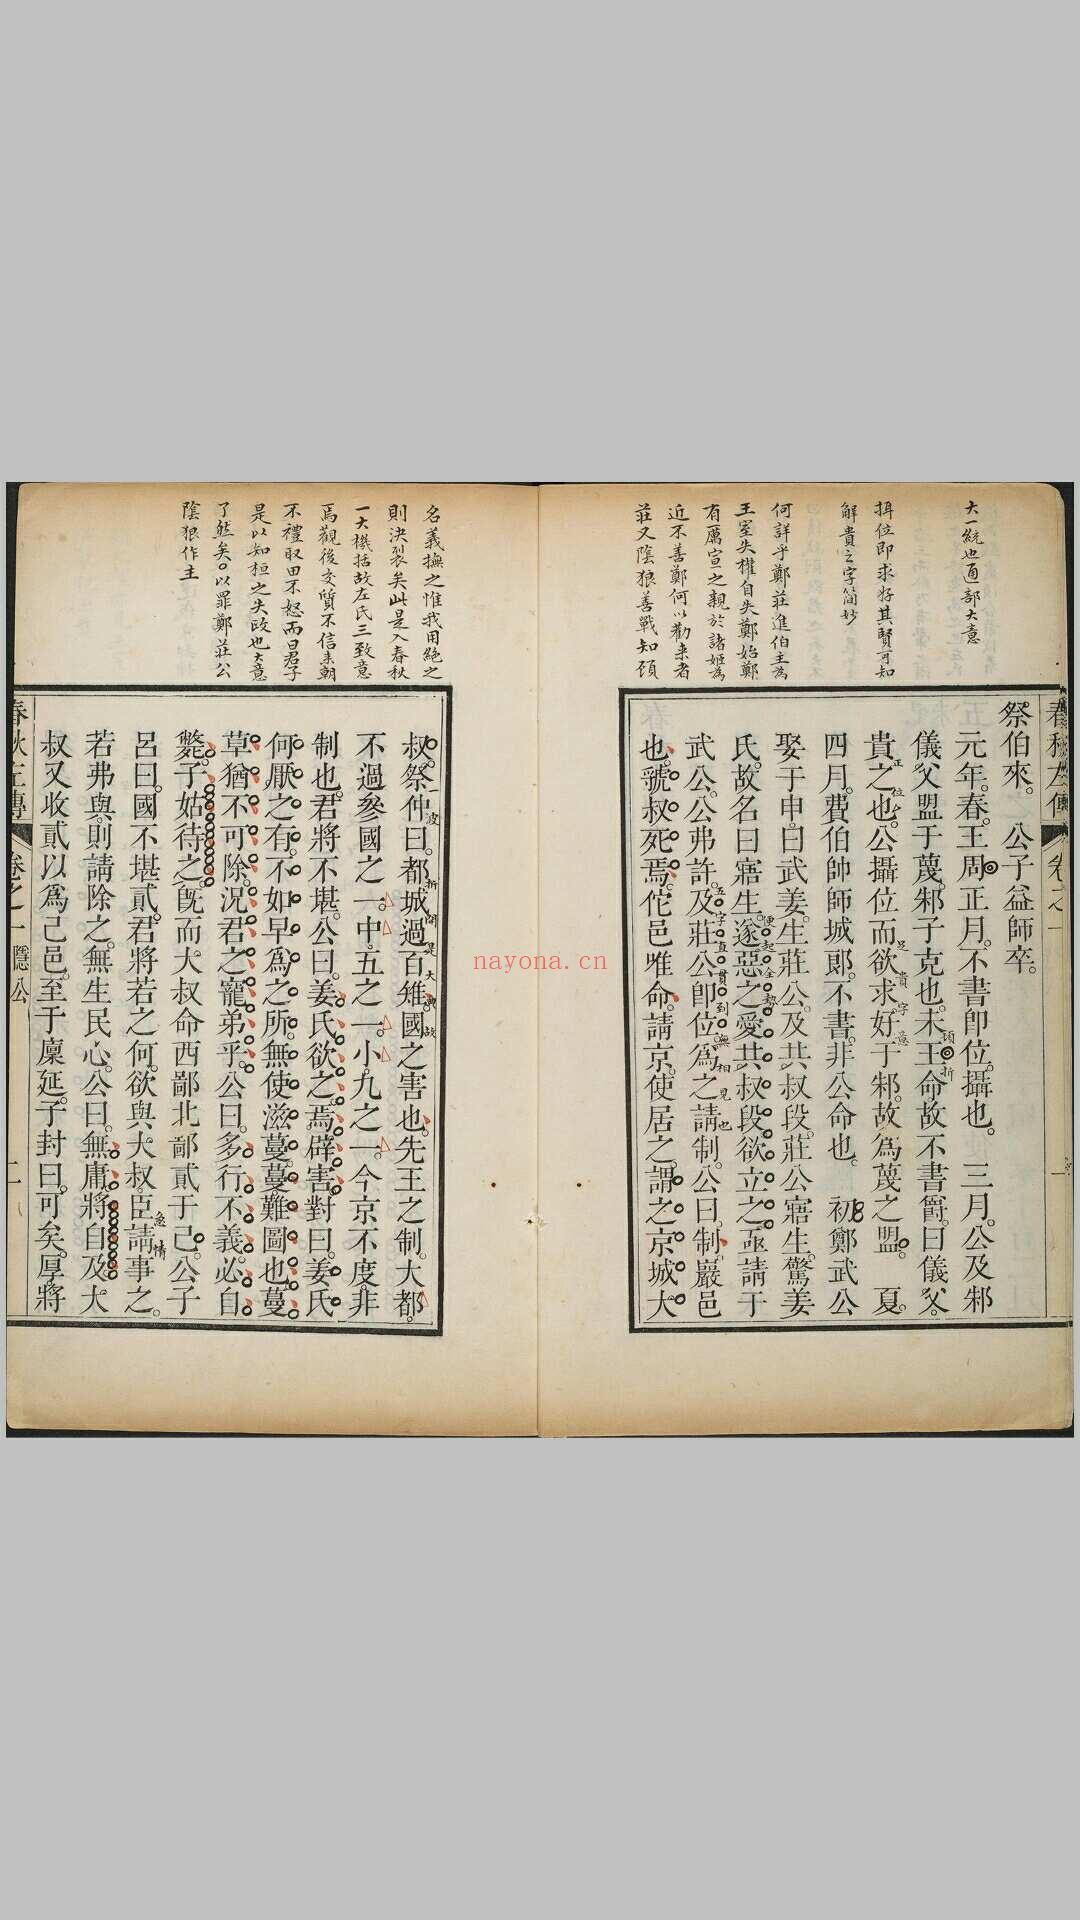 大一統也通部大意
揖位即求好其賢可知
解貴之字簡妙
何詳乎鄭莊進伯主為
王室失權自失鄭始鄭
有厲宣之親於諸姬為
近不善鄭何以勸来者
莊又陰狼善戰知頎
春秋左傳 卷之一
祭伯來。公子益師卒。
元年。春。王周正月。不書卽位。攝也。三月。公及邾
儀父盟于蔑。邾子克也。未王命。故不書爵。曰儀父。
貴之也。公攝位而欲求好于邾。故為蔑之盟。夏。
四月。費伯帥師城郎。不書。非公命也。初鄭武公
娶于申。曰武姜。生莊公。及共叔段。莊公寤生。驚姜
氏。故名曰寤生。遂惡之。愛共叔段。欲立之。亟請于
武公。公弗許。及莊公卽位。為之請制。公曰。制。巖邑
也。虢叔死焉。佗邑唯命。請京。使居之。謂之京城大
正位
足貴字意
頓折
便起全勢
五字直貫到無相見也
名義撫之惟我用絕之
則決裂矣此是入春秋
一大機括故左氏三致意
焉觀後交質不信来朝
不禮取田不怒而曰君子
是以知桓之失政也大意
了然矣〇以罪鄭莊公
陰狠作主
叔。祭仲曰。都城過百雉。國之害也。先王之制。大都。
不過參國之一。中。五之一。小。九之一。今京不度。非
制也。君將不堪。公曰。姜氏欲之。焉辟害。對曰。姜氏
何厭之有。不如早為之所。無使滋蔓。蔓難圖也。蔓
草猶不可除。況君之寵弟乎。公曰。多行不義。必自
斃。子姑待之。旣而大叔命西鄙北鄙貳于己。公子
呂曰。國不堪貳。君將若之何。欲與大叔。臣請事之。
若弗與。則請除之。無生民心。公曰。無庸。將自及。大
叔又收貳以爲己邑。至于廩延。子封曰。可矣。厚將
一波
折開是大典故
急情
春秋左傳 卷之一 隱公 二
nayona.cn